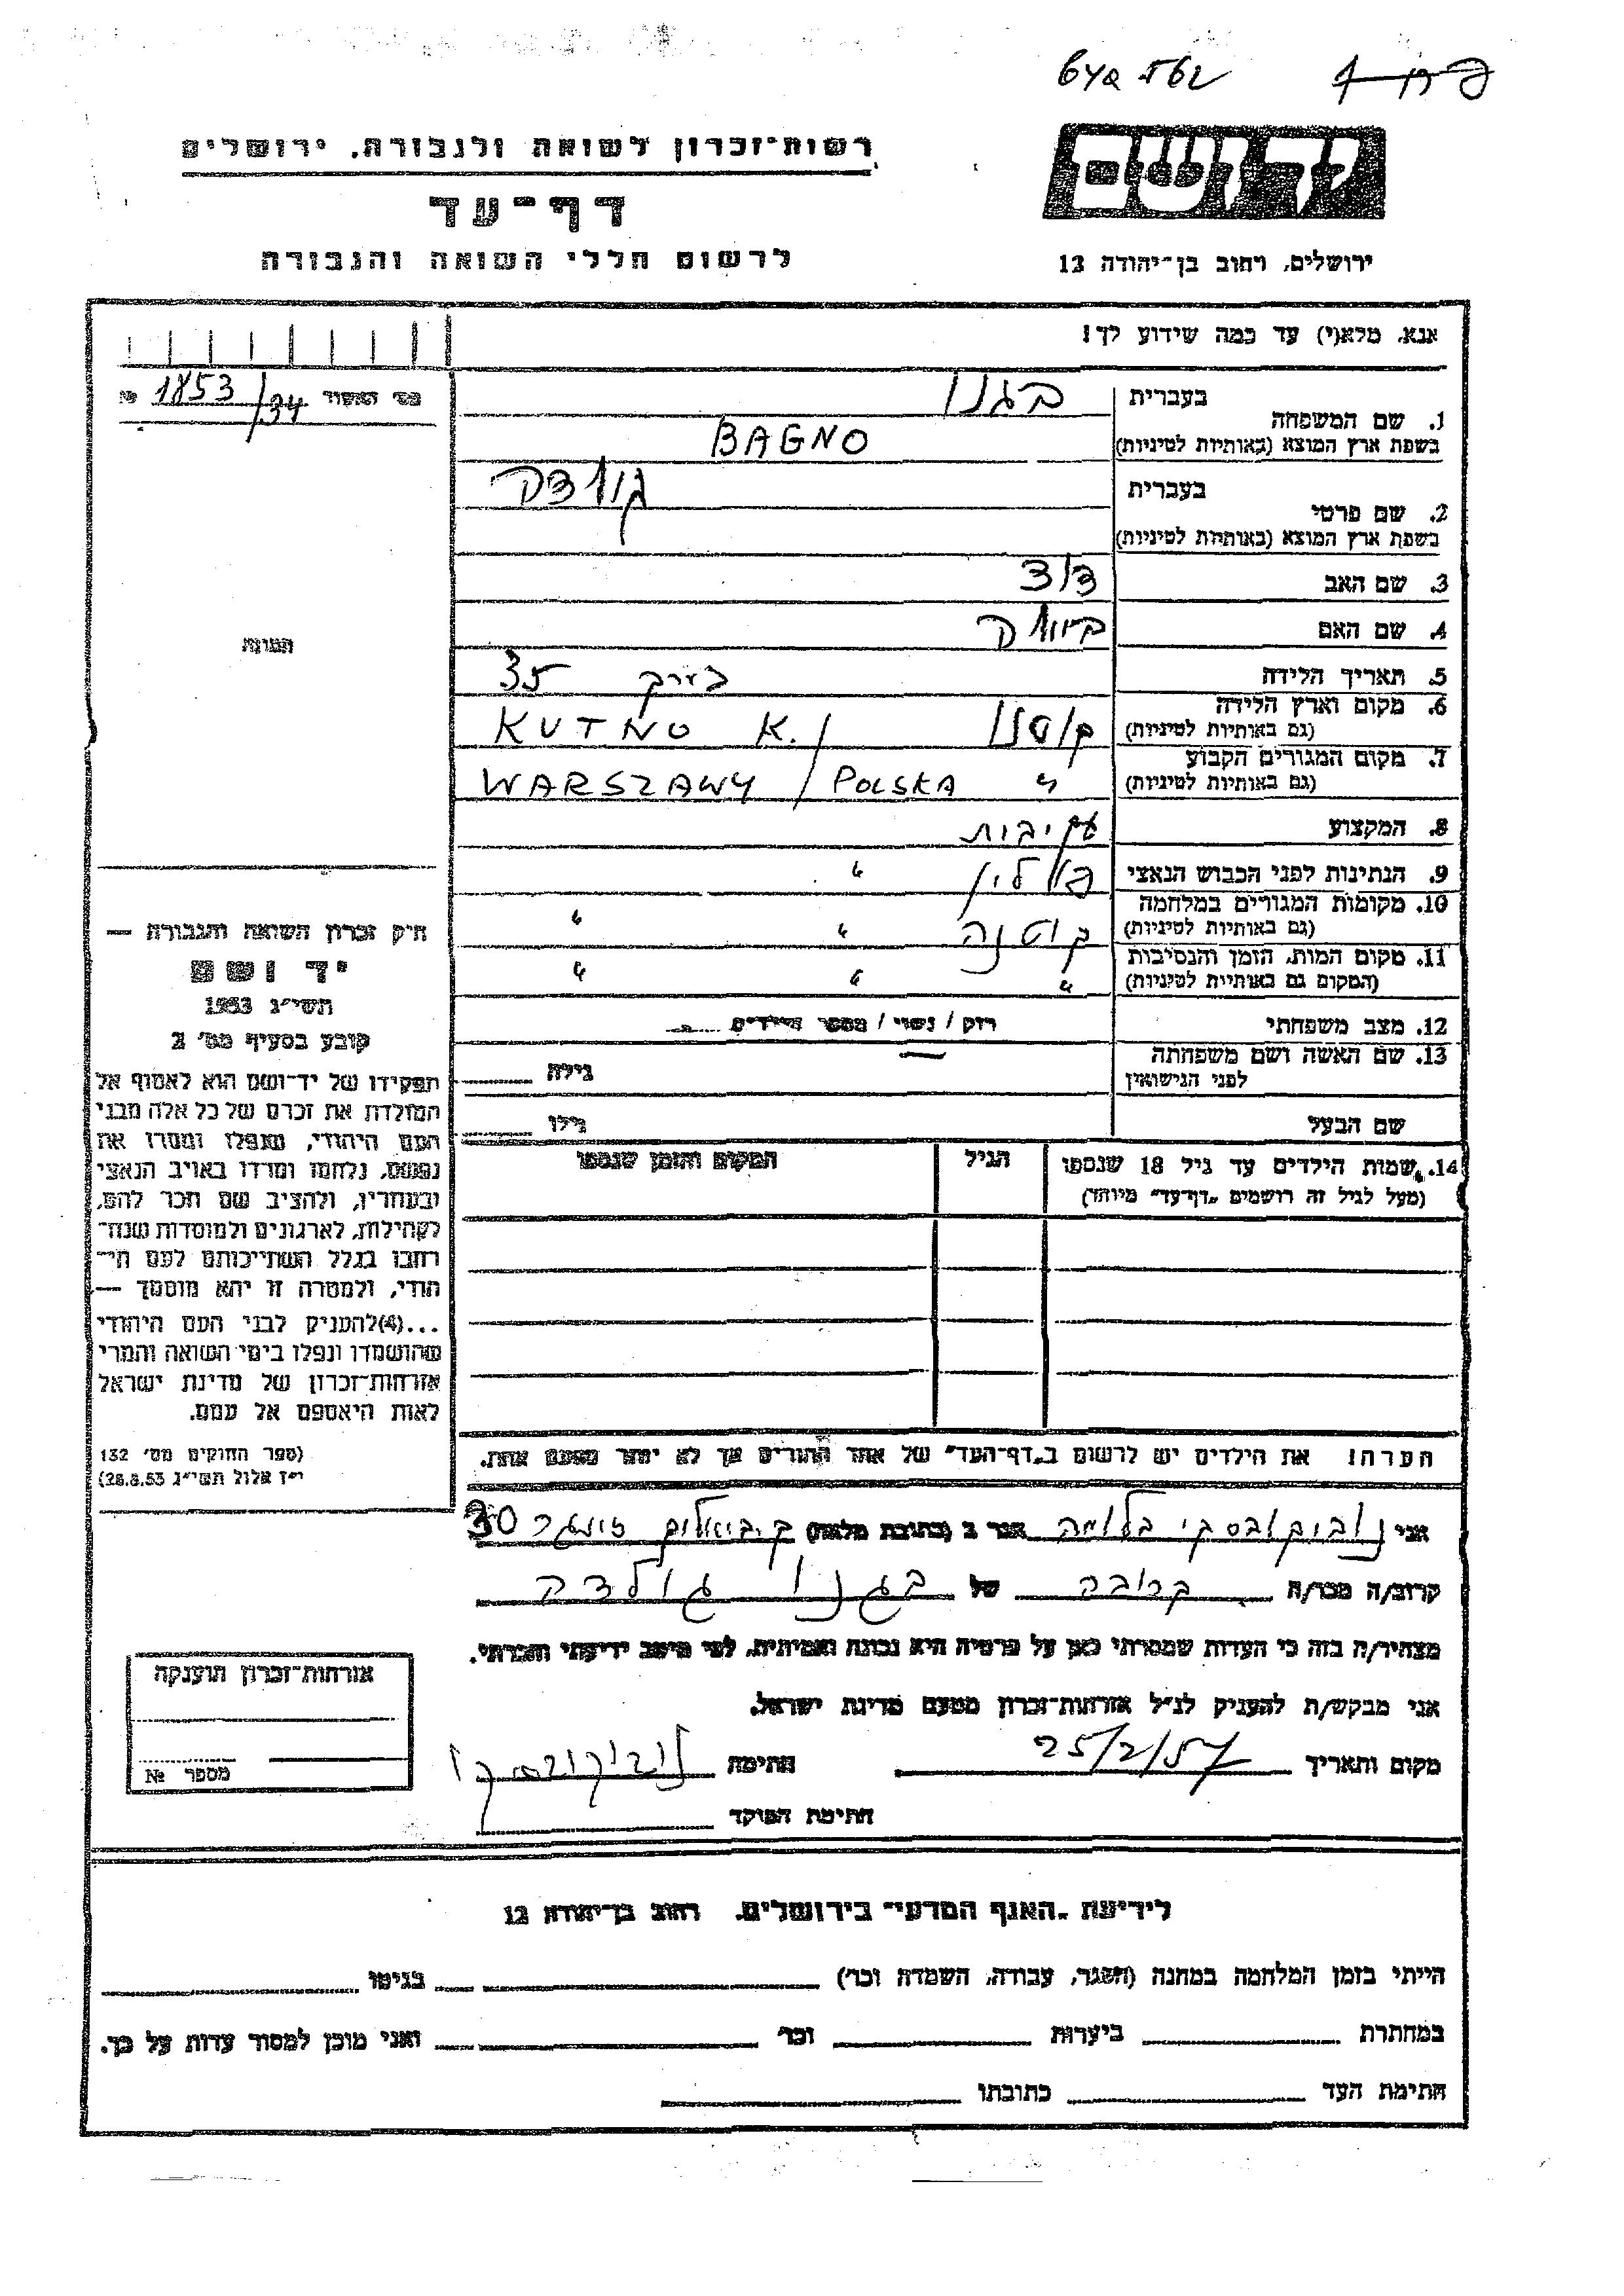 יד ושם
ירושלים, רחוב בן־יהודה 12
רשות־זכרון לשואה ולגבורה, ירושלים
דף־עד
לרשום חללי השואה והגבורה
אנא, מלא(י) עד כמה שידוע לך!
מס׳ האשור № 1853/34
1. שם המשפחה בעברית בגנו
בשפת ארץ המוצא (באותיות לטיניות) BAGNO
2. שם פרטי בעברית גולדה
בשפת ארץ המוצא (באותיות לטיניות)
3. שם האב דוד
4. שם האם
5. תאריך הלידה בערך 35
6. מקום וארץ הלידה (גם באותיות לטיניות) קוטנו KUTNO K./
7. מקום המגורים הקבוע (גם באותיות לטיניות) " WARSZAWY / POLSKA
8. המקצוע
9. הנתינות לפני הכבוש הנאצי פולין "
10. מקומות המגורים במלחמה (גם באותיות לטיניות) קוטנה " "
11. מקום המות, הזמן והנסיבות (המקום גם באותיות לטיניות) " " "
12. מצב משפחתי רוק / נשוי / מספר הילדים
13. שם האשה ושם משפחתה לפני הנישואין גילה
שם הבעל גילו
14. שמות הילדים עד גיל 18 שנספו הגיל המקום והזמן שנספו
(מעל לגיל זה רושמים „דף־עד” מיוחד)
הערה! את הילדים יש לרשום ב„דף־העד” של אחד ההורים אך לא יותר מפעם אחת.
התמונה
חוק זכרון השואה והגבורה —
יד ושם
תשי״ג 1953
קובע בסעיף מס׳ 2
תפקידו של יד־ושם הוא לאסוף אל
המולדת את זכרם של כל אלה מבני
העם היהודי, שנפלו ומסרו את
נפשם, נלחמו ומרדו באויב הנאצי
ובעוזריו, ולהציב שם וזכר להם,
לקהילות, לארגונים ולמוסדות שנח־
רבו בגלל השתייכותם לעם הי־
הודי, ולמטרה זו יהא מוסמך —
...(4)להעניק לבני העם היהודי
שהושמדו ונפלו בימי השואה והמרי
אזרחות־זכרון של מדינת ישראל
לאות היאספם אל עמם.
(ספר החוקים מס׳ 132
י״ז אלול תשי״ג 28.8.53)
אני בלומה הגר ב (כתובת מלאה) ק. ביאליק 30
קרוב/ה מכר/ה קרובה של בגנו גולדה
מצהיר/ה בזה כי העדות שמסרתי כאן על פרטיה היא נכונה ואמיתית, לפי מיטב ידיעתי והכרתי.
אני מבקש/ת להעניק לנ״ל אזרחות־זכרון מטעם מדינת ישראל.
מקום ותאריך 25/2/57 חתימה
חתימת הפוקד
אזרחות־זכרון הוענקה
מספר №
לידיעת „האגף המדעי” בירושלים, רחוב בן־יהודה 12
הייתי בזמן המלחמה במחנה (הסגר, עבודה, השמדה וכו׳) בגיטו
במחתרת ביערות וכו׳ ואני מוכן למסור עדות על כך.
חתימת העד כתובתו